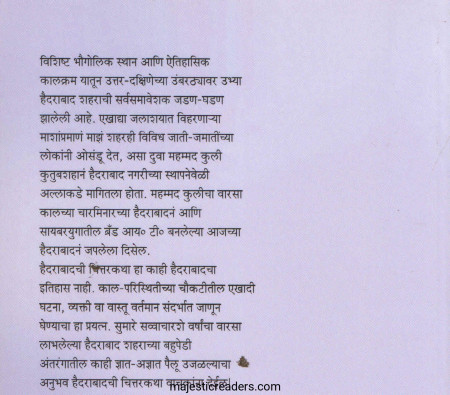 विशिष्ट भौगोलिक स्थान आणि ऐतिहासिक
कालक्रम यातून उत्तर-दक्षिणेच्या उंबरठ्यावर उभ्या
हैदराबाद शहराची सर्वसमावेशक जडण-घडण
झालेली आहे. एखाद्या जलाशयात विहरणाऱ्या
माशांप्रमाणं माझं शहरही विविध जाती-जमातींच्या
लोकांनी ओसंडू देत, असा दुवा महम्मद कुली
कुतुबशहानं हैदराबाद नगरीच्या स्थापनेवेळी
अल्लाकडे मागितला होता. महम्मद कुलीचा वारसा
कालच्या चारमिनारच्या हैदराबादनं आणि
सायबरयुगातील ब्रँड आय० टी० बनलेल्या आजच्या
हैदराबादनं जपलेला दिसेल.
हैदराबादची चित्तरकथा हा काही हैदराबादचा
इतिहास नाही. काल-परिस्थितीच्या चौकटीतील एखादी
घटना, व्यक्ती वा वास्तू वर्तमान संदर्भात जाणून
घेण्याचा हा प्रयत्न. सुमारे सव्वाचारशे वर्षांचा वारसा
लाभलेल्या हैदराबाद शहराच्या बहुपेडी
अंतरंगातील काही ज्ञात-अज्ञात पैलू उजळल्याचा
अनुभव हैदराबादची चित्तरकथा वाचकांना देईल!
majesticreaders.com